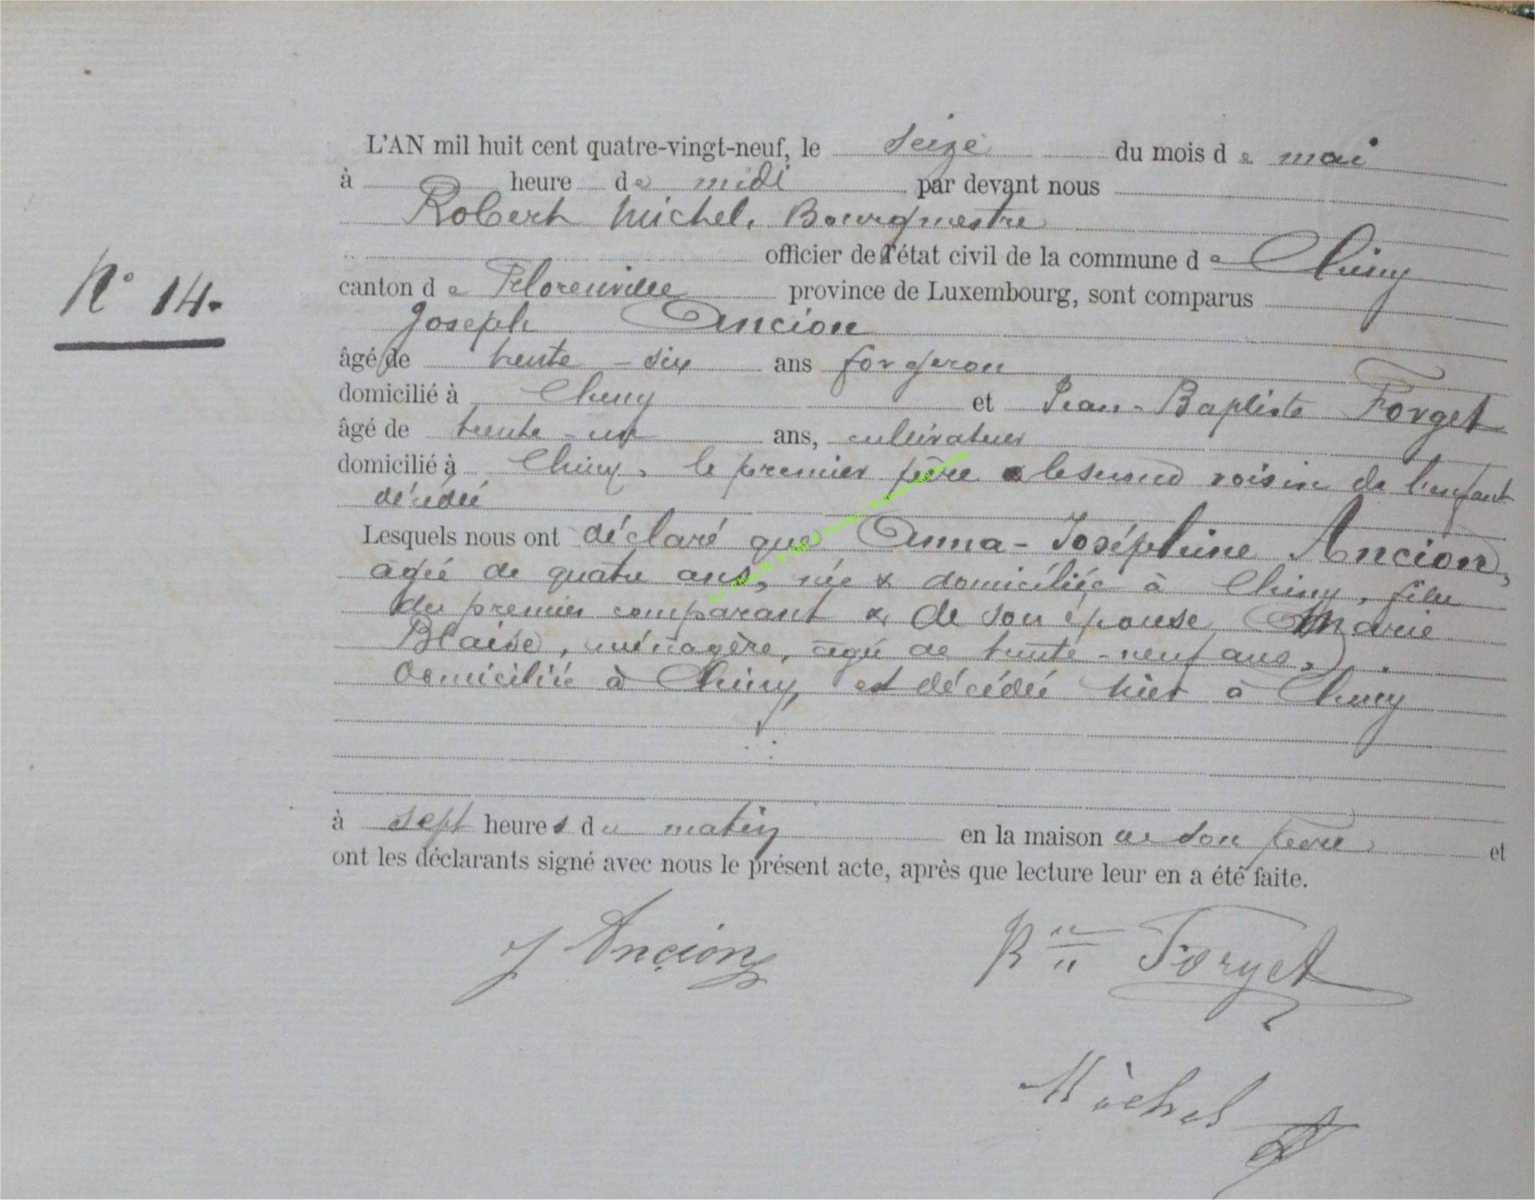 L'AN mil huit cent quatre-vingt-neuf, le seize du mois de mai
à heure de midi par devant nous
Robert Michel, Bourgmestre
officier de l'état civil de la commune de Chiny
N° 14.
canton de Florenville province de Luxembourg, sont comparus
Joseph Ancion
âgé de trente-six ans forgeron
domicilié à Chiny et Jean-Baptiste Forget
âgé de trente-un ans, cultivateur
domicilié à Chiny, le premier père & le second voisin de l'enfant
décédée
Lesquels nous ont déclaré que Anna-Joséphine Ancion,
agée de quatre ans, née & domiciliée à Chiny, fille
du premier comparant & de son épouse Marie
Blaise, ménagère, agée de trente-neuf ans,
domiciliée à Chiny, est décédée hier à Chiny
à sept heures du matin en la maison de son père et
ont les déclarants signé avec nous le présent acte, après que lecture leur en a été faite.
J Ancion
Forget
Michel